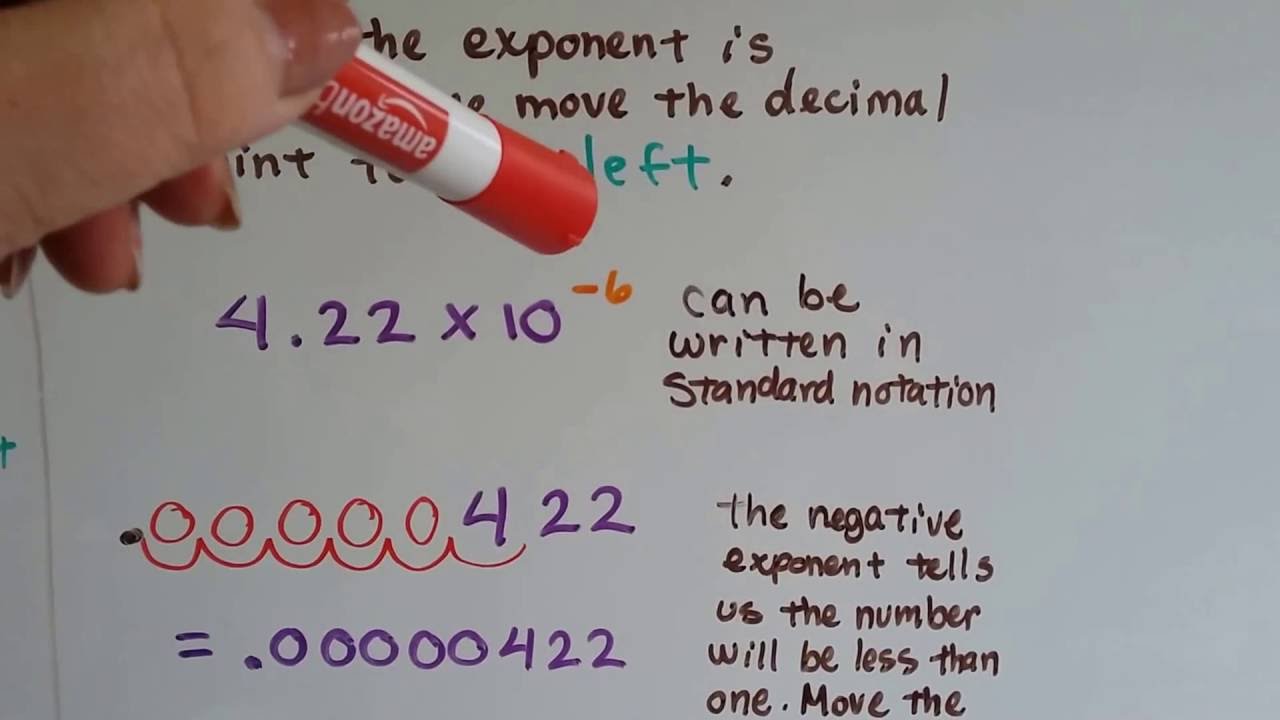 he exponent is
move the decimal
int left.
amazonb
4.22 x 10⁻⁶
can be
written in
Standard notation
.00000422
= .00000422
the negative
exponent tells
us the number
will be less than
one. Move the